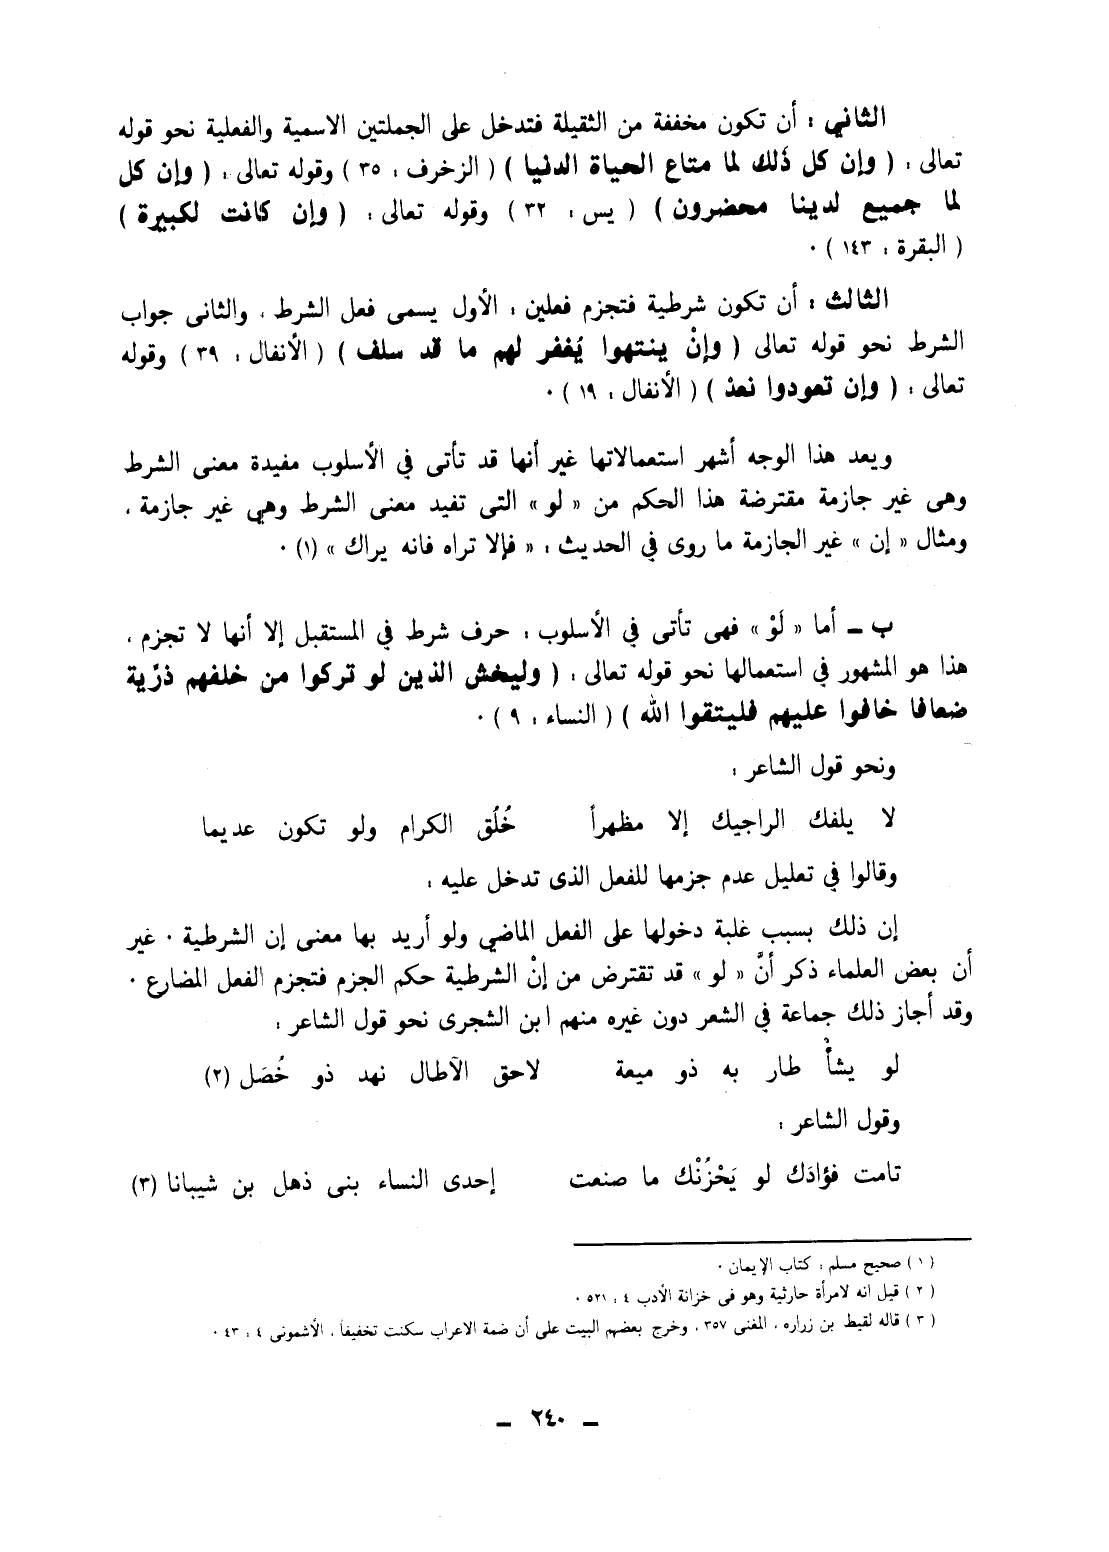 الثاني : أن تكون مخففة من الثقيلة فتدخل على الجملتين الاسمية والفعلية نحو قوله
تعالى : ( وإن كل ذَلك لما متاع الحياة الدنيا ) ( الزخرف : ٣٥ ) وقوله تعالى : ( وإن كل
لما جميع لدينا محضرون ) ( يس : ٣٢ ) وقوله تعالى : ( وإن كانت لكبيرة )
( البقرة : ١٤٣ ) .
الثالث : أن تكون شرطية فتجزم فعلين : الأول يسمى فعل الشرط ، والثانى جواب
الشرط نحو قوله تعالى ( وإنْ ينتهوا يُغفر لهم ما قد سلف ) ( الأنفال : ٣٩ ) وقوله
تعالى : ( وإن تعودوا نعذ ) ( الأنفال : ١٩ ) .
ويعد هذا الوجه أشهر استعمالاتها غير أنها قد تأتى في الأسلوب مفيدة معنى الشرط
وهى غير جازمة مقترضة هذا الحكم من « لو » التى تفيد معنى الشرط وهي غير جازمة ،
ومثال « إن » غير الجازمة ما روى في الحديث : « فإلا تراه فانه يراك » (١) .
ب ــ أما « لَوْ » فهى تأتى في الأسلوب : حرف شرط في المستقبل إلا أنها لا تجزم ،
هذا هو المشهور في استعمالها نحو قوله تعالى : ( وليخش الذين لو تركوا من خلفهم ذرّية
ضعافا خافوا عليهم فليتقوا الله ) ( النساء : ٩ ) .
ونحو قول الشاعر :
لا يلفك الراجيك إلا مظهراً خُلُق الكرام ولو تكون عديما
وقالوا في تعليل عدم جزمها للفعل الذى تدخل عليه :
إن ذلك بسبب غلبة دخولها على الفعل الماضي ولو أريد بها معنى إن الشرطية . غير
أن بعض العلماء ذكر أنَّ « لو » قد تقترض من إنْ الشرطية حكم الجزم فتجزم الفعل المضارع .
وقد أجاز ذلك جماعة في الشعر دون غيره منهم ابن الشجرى نحو قول الشاعر :
لو يشأْ طار به ذو ميعة لاحق الآطال نهد ذو خُصَل (٢)
وقول الشاعر :
تامت فؤادَك لو يَحْزُنْك ما صنعت إحدى النساء بنى ذهل بن شيبانا (٣)
( ١ ) صحيح مسلم : كتاب الإيمان .
( ٢ ) قيل انه لامرأة حارثية وهو فى خزانة الأدب ٤ : ٥٢١ .
( ٣ ) قاله لقيط بن زراره ، المغنى ٣٥٧ ، وخرج بعضهم البيت على أن ضمة الاعراب سكنت تخفيفاً ، الأشمونى ٤ : ٤٣ .
ــ ٢٤٠ ــ